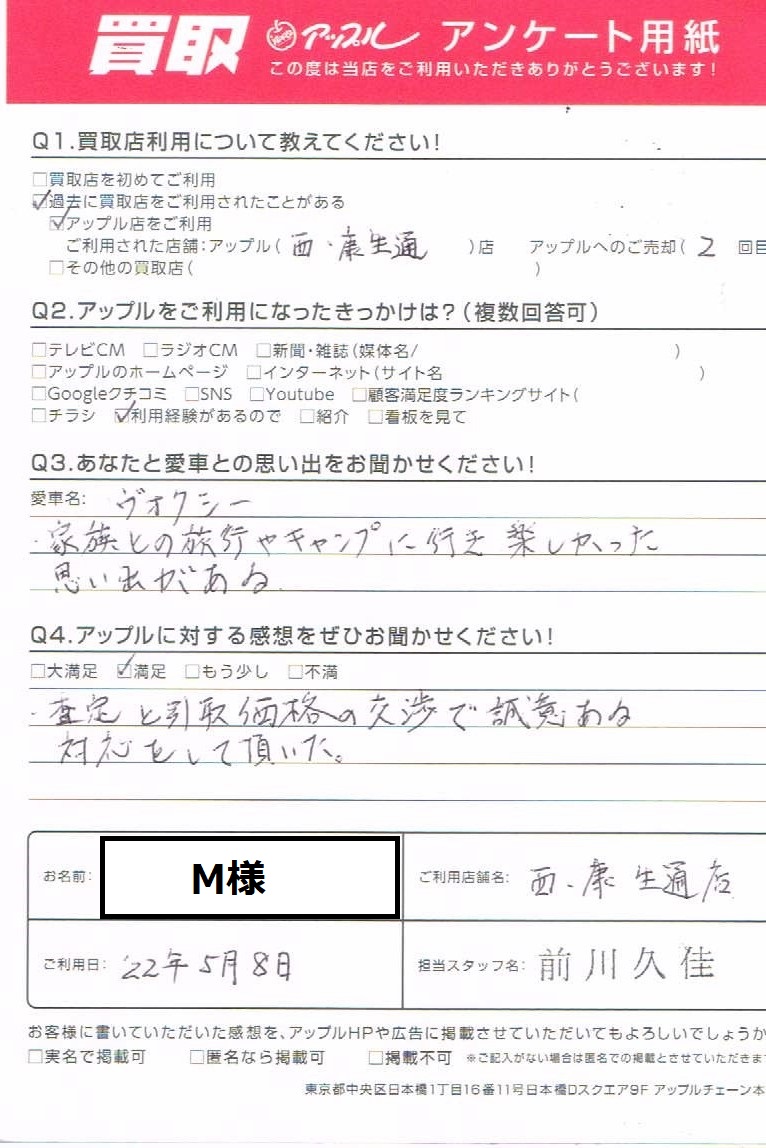 買取 アップル アンケート用紙
この度は当店をご利用いただきありがとうございます!
Q1.買取店利用について教えてください!
□買取店を初めてご利用
☑過去に買取店をご利用されたことがある
☑アップル店をご利用
ご利用された店舗:アップル( 西・康生通 )店 アップルへのご売却( 2 回目
□その他の買取店( )
Q2.アップルをご利用になったきっかけは?(複数回答可)
□テレビCM □ラジオCM □新聞・雑誌(媒体名/ )
□アップルのホームページ □インターネット(サイト名 )
□Googleクチコミ □SNS □Youtube □顧客満足度ランキングサイト(
□チラシ ☑利用経験があるので □紹介 □看板を見て
Q3.あなたと愛車との思い出をお聞かせください!
愛車名: ヴォクシー
・家族との旅行やキャンプに行き楽しかった
思い出がある
Q4.アップルに対する感想をぜひお聞かせください!
□大満足 ☑満足 □もう少し □不満
・査定と引取価格の交渉で誠意ある
対応をして頂いた。
お名前: M様 ご利用店舗名: 西・康生通店
ご利用日: '22年5月8日 担当スタッフ名: 前川久佳
お客様に書いていただいた感想を、アップルHPや広告に掲載させていただいてもよろしいでしょうか
□実名で掲載可 □匿名なら掲載可 □掲載不可 ※ご記入がない場合は匿名での掲載とさせていただきま
東京都中央区日本橋1丁目16番11号日本橋Dスクエア9F アップルチェーン本